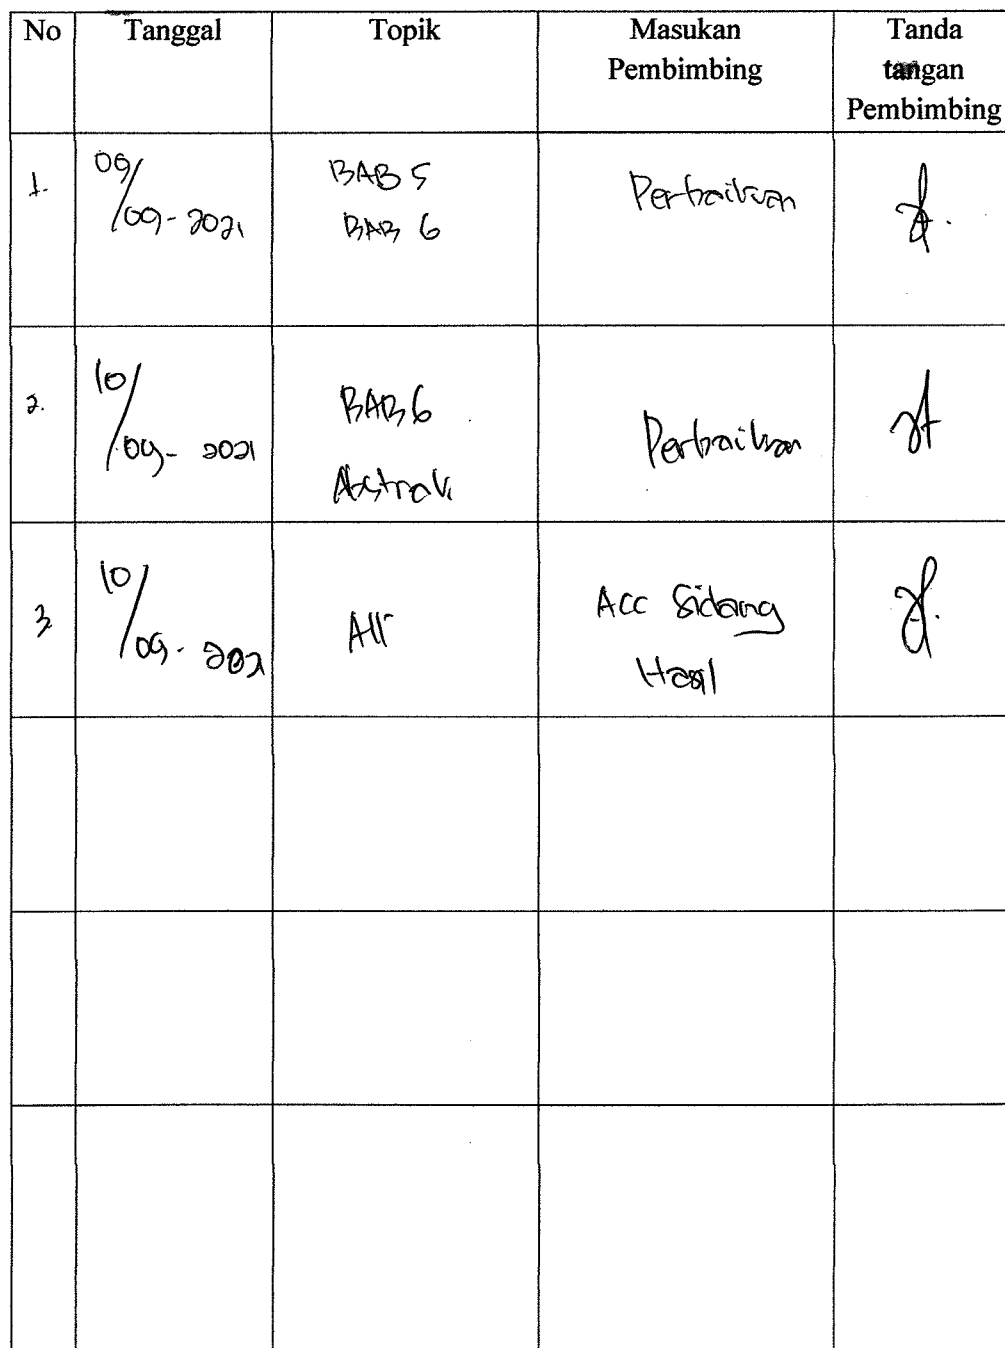 No Tanggal Topik Masukan Pembimbing Tanda tangan Pembimbing
1. 09/09-2021 BAB 5 Perbaikan
BAB 6
2. 10/09-2021 BAB 6 Perbaikan
Abstrak
3 10/09-2021 All Acc Sidang
Hasil